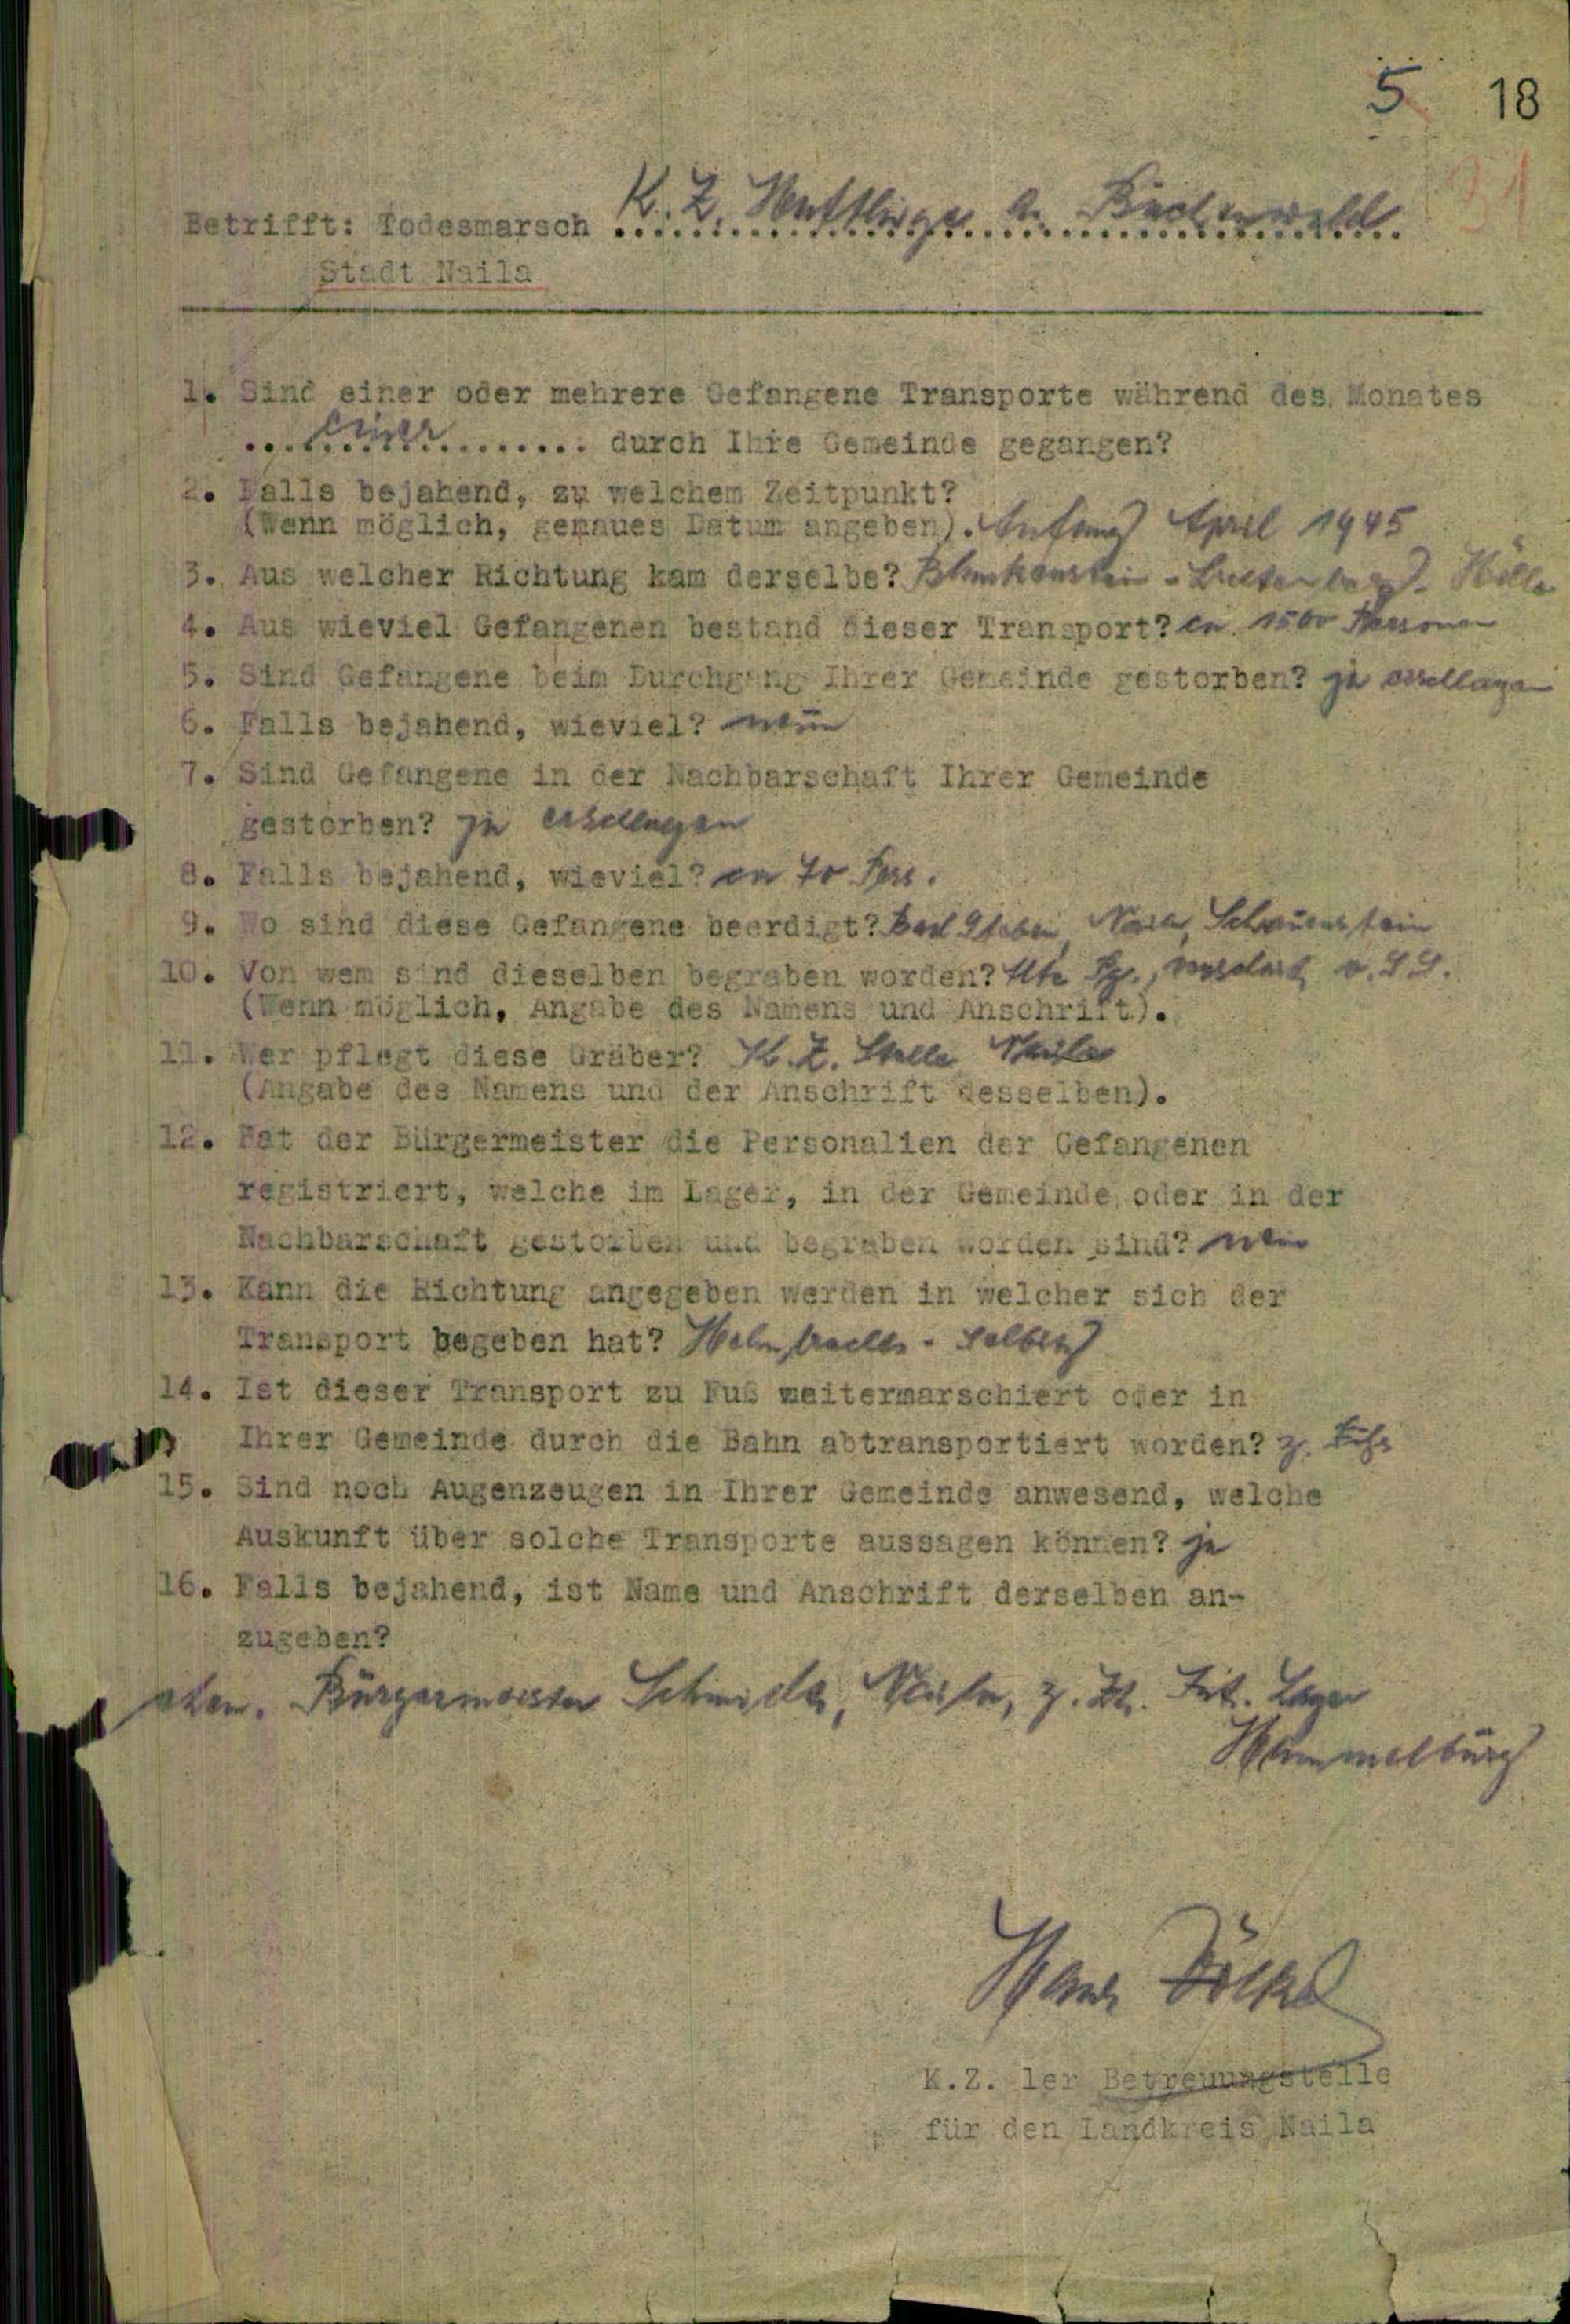 5 18
31
Betrifft: Todesmarsch K.Z. Häftlinge a. Buchenwald
Stadt Naila
1. Sind einer oder mehrere Gefangene Transporte während des Monates
einer durch Ihre Gemeinde gegangen?
2. Falls bejahend, zu welchem Zeitpunkt?
(Wenn möglich, genaues Datum angeben). Anfang April 1945
3. Aus welcher Richtung kam derselbe? Blankenstein - Hölle
4. Aus wieviel Gefangenen bestand dieser Transport? ca. 1500 Personen
5. Sind Gefangene beim Durchgang Ihrer Gemeinde gestorben? ja erschlagen
6. Falls bejahend, wieviel?
7. Sind Gefangene in der Nachbarschaft Ihrer Gemeinde
gestorben? ja erschlagen
8. Falls bejahend, wieviel? ca Pers.
9. Wo sind diese Gefangene beerdigt? Bad Steben, Naila, Schauenstein
10. Von wem sind dieselben begraben worden? Alte Pg., verscharrt v. SS.
(Wenn möglich, Angabe des Namens und Anschrift).
11. Wer pflegt diese Gräber? K.Z. Stelle Naila
(Angabe des Namens und der Anschrift desselben).
12. Hat der Bürgermeister die Personalien der Gefangenen
registriert, welche im Lager, in der Gemeinde oder in der
Nachbarschaft gestorben und begraben worden sind? nein
13. Kann die Richtung angegeben werden in welcher sich der
Transport begeben hat? Helmbrechts - Selbitz
14. Ist dieser Transport zu Fuß weitermarschiert oder in
Ihrer Gemeinde durch die Bahn abtransportiert worden? z. Fuß
15. Sind noch Augenzeugen in Ihrer Gemeinde anwesend, welche
Auskunft über solche Transporte aussagen können? ja
16. Falls bejahend, ist Name und Anschrift derselben an-
zugeben?
ehem. Bürgermeister Naila, z. Zt. Int. Lager
Hammelburg
Hans
K.Z. ler Betreuungstelle
für den Landkreis Naila